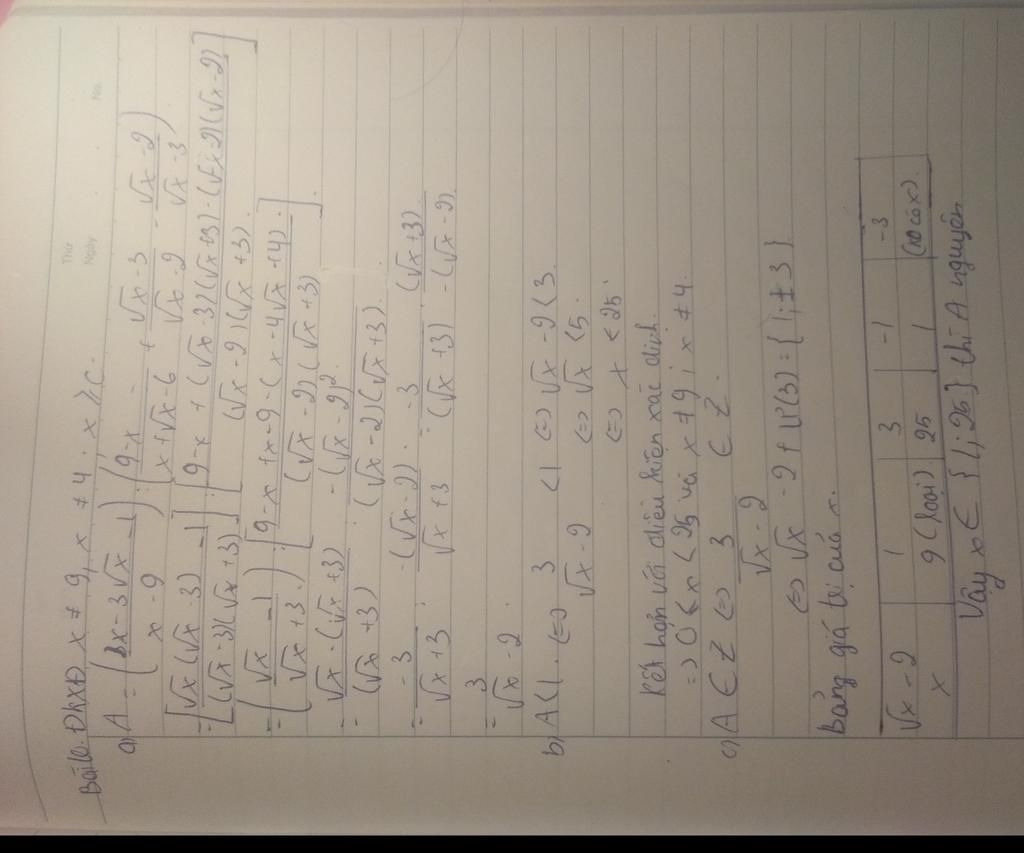 Thứ
Ngày No.
Bài 16. ĐKXĐ x ≠ 9, x ≠ 4. x ≥ 0.
a) A = (3x - 3√x / x - 9 - 1) : (9 - x / x + √x - 6 + √x - 3 / √x - 2 - √x - 2 / √x - 3)
= [√x(√x - 3) / (√x - 3)(√x + 3) - 1] : [9 - x + (√x - 3)(√x + 3) - (√x - 2)(√x - 2) / (√x - 2)(√x + 3)]
= (√x / √x + 3 - 1) : [9 - x + x - 9 - (x - 4√x + 4) / (√x - 2)(√x + 3)].
= √x - (√x + 3) / (√x + 3) : - (√x - 2)² / (√x - 2)(√x + 3).
= - 3 / √x + 3 : - (√x - 2) / √x + 3 . - 3 / (√x + 3) . (√x + 3) / - (√x - 2)
= 3 / √x - 2.
b) A < 1. <=> 3 / √x - 2 < 1 <=> √x - 2 < 3.
<=> √x < 5.
<=> x < 25.
Kết hợp với điều kiện xác định.
=> 0 < x < 25 và x ≠ 9; x ≠ 4.
c) A ∈ Z <=> 3 / √x - 2 ∈ Z.
<=> √x - 2 ∈ Ư(3) = {1; ± 3}
Bảng giá trị của x.
√x - 2 1 3 - 1 - 3
x 9 (loại). 25 1 (ko có x).
Vậy x ∈ {1; 25} thì A nguyên